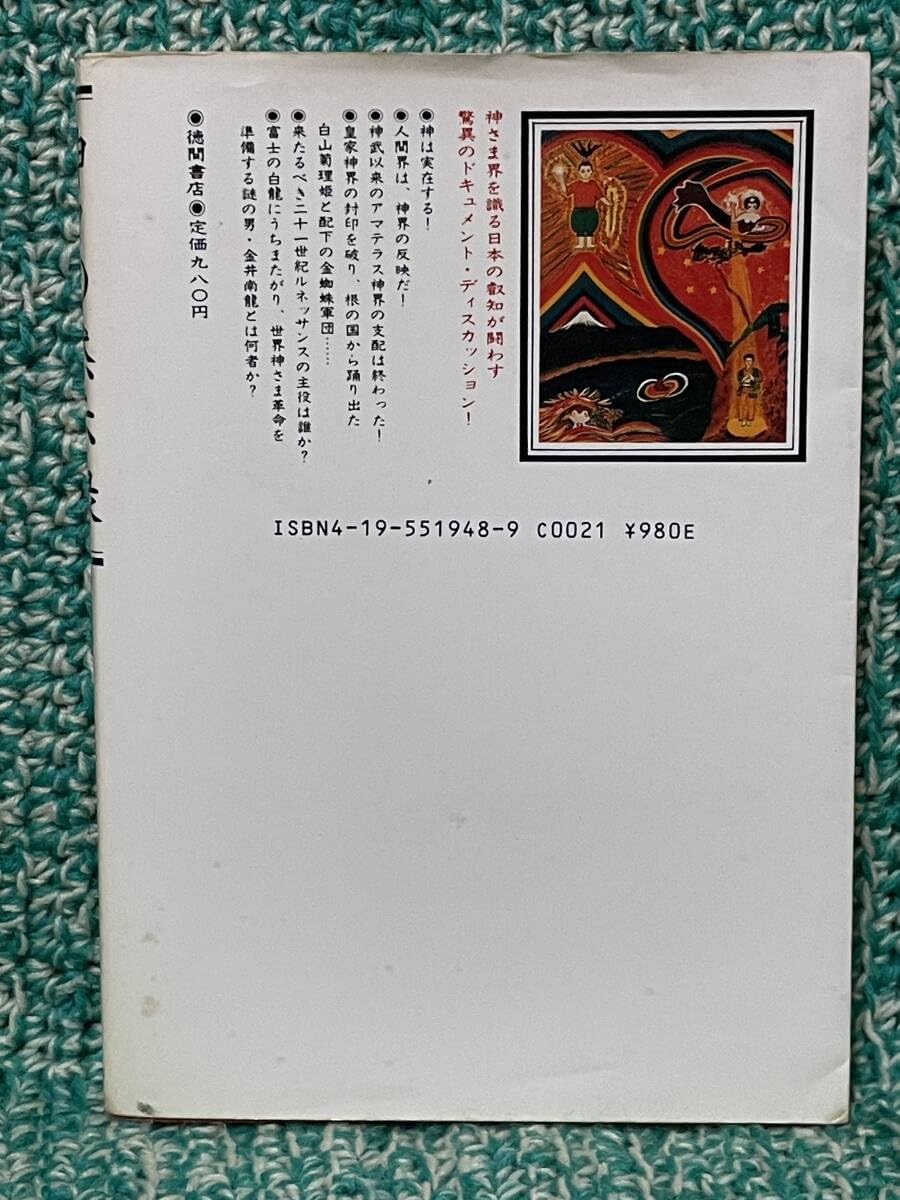 神さま界を識る日本の叡知が闘わす
驚異のドキュメント・ディスカッション!
◉神は実在する!
◉人間界は、神界の反映だ!
◉神武以来のアマテラス神界の支配は終わった!
◉皇家神界の封印を破り、根の国から踊り出た
白山菊理姫と配下の金蜘蛛軍団……
◉来たるべき二十一世紀ルネッサンスの主役は誰か?
◉富士の白龍にうちまたがり、世界神さま革命を
準備する謎の男・金井南龍とは何者か?
◉徳間書店◉定価九八〇円
ISBN4-19-551948-9 C0021 ¥980E